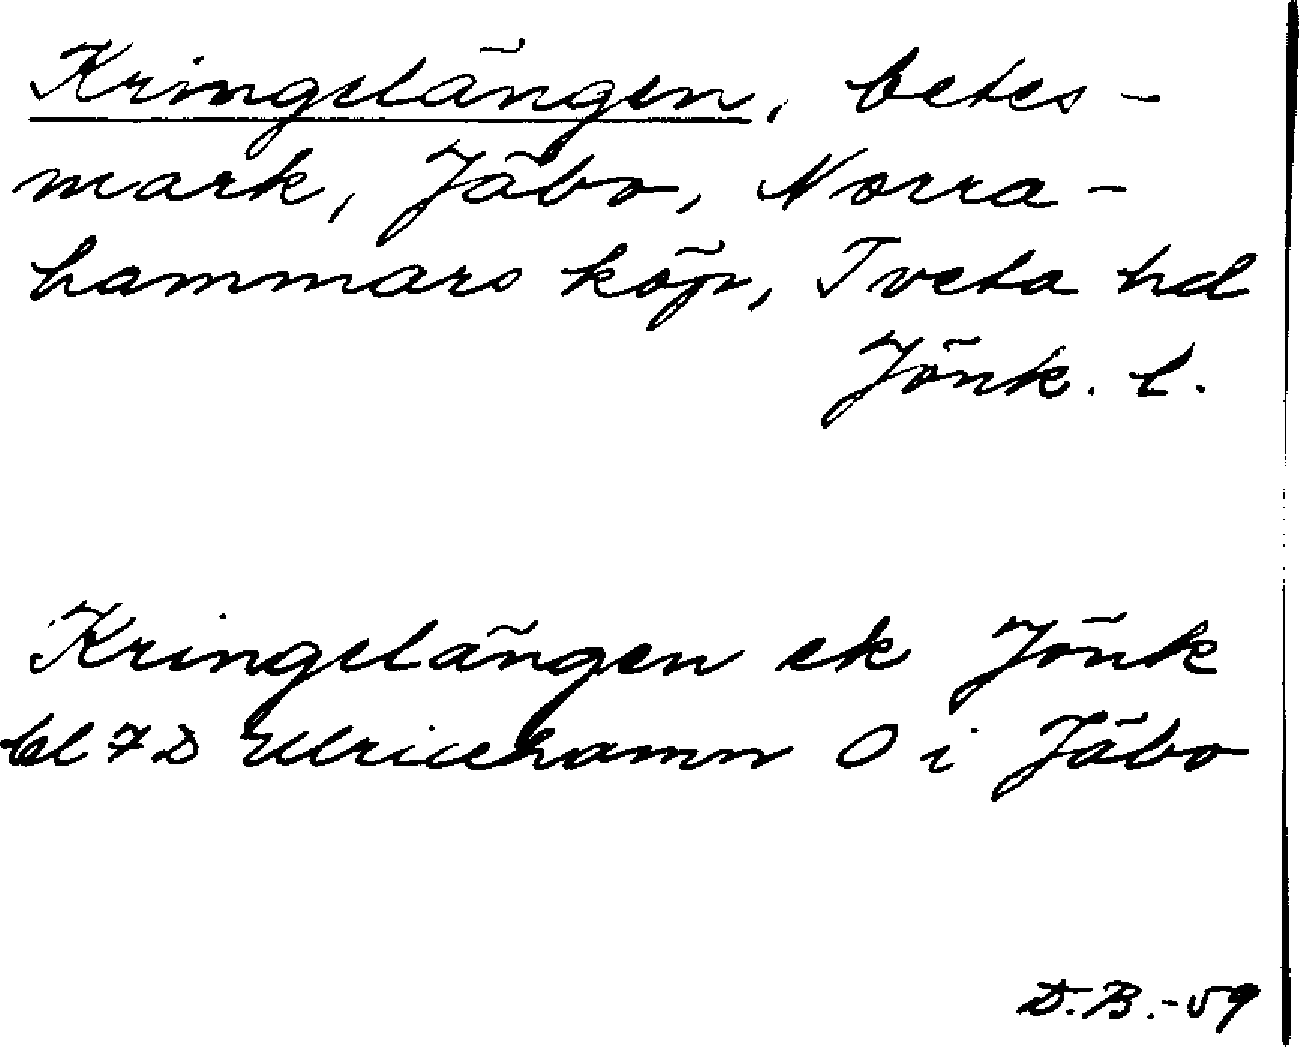 Kringelängen, betes-
mark, Jäbo, Norra-
hammars köp, Tveta hd
Jönk. l.
Kringelängen ek Jönk
bl 7 D Ulricehamn O i Jäbo
D.B.-59